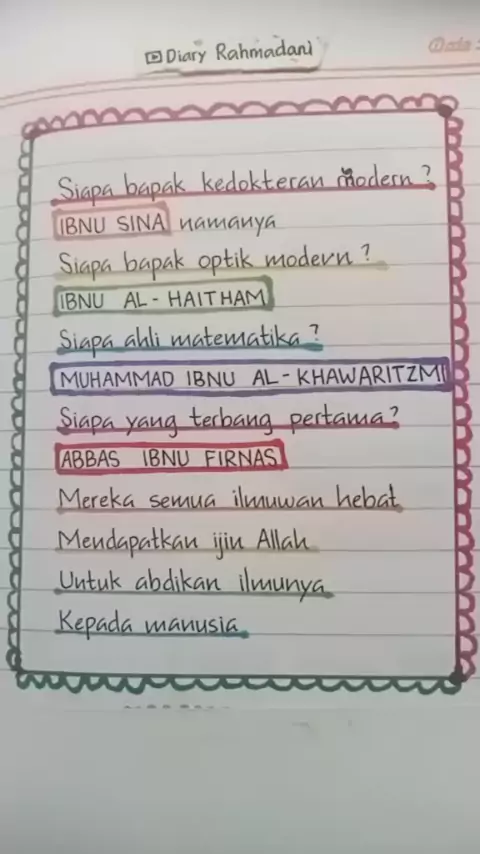 Diary Rahmadani
Siapa bapak kedokteran modern?
IBNU SINA namanya
Siapa bapak optik modern?
IBNU AL-HAITHAM
Siapa ahli matematika?
MUHAMMAD IBNU AL-KHAWARITZMI
Siapa yang terbang pertama?
ABBAS IBNU FIRNAS
Mereka semua ilmuwan hebat
Mendapatkan ijin Allah
Untuk abdikan ilmunya
Kepada manusia